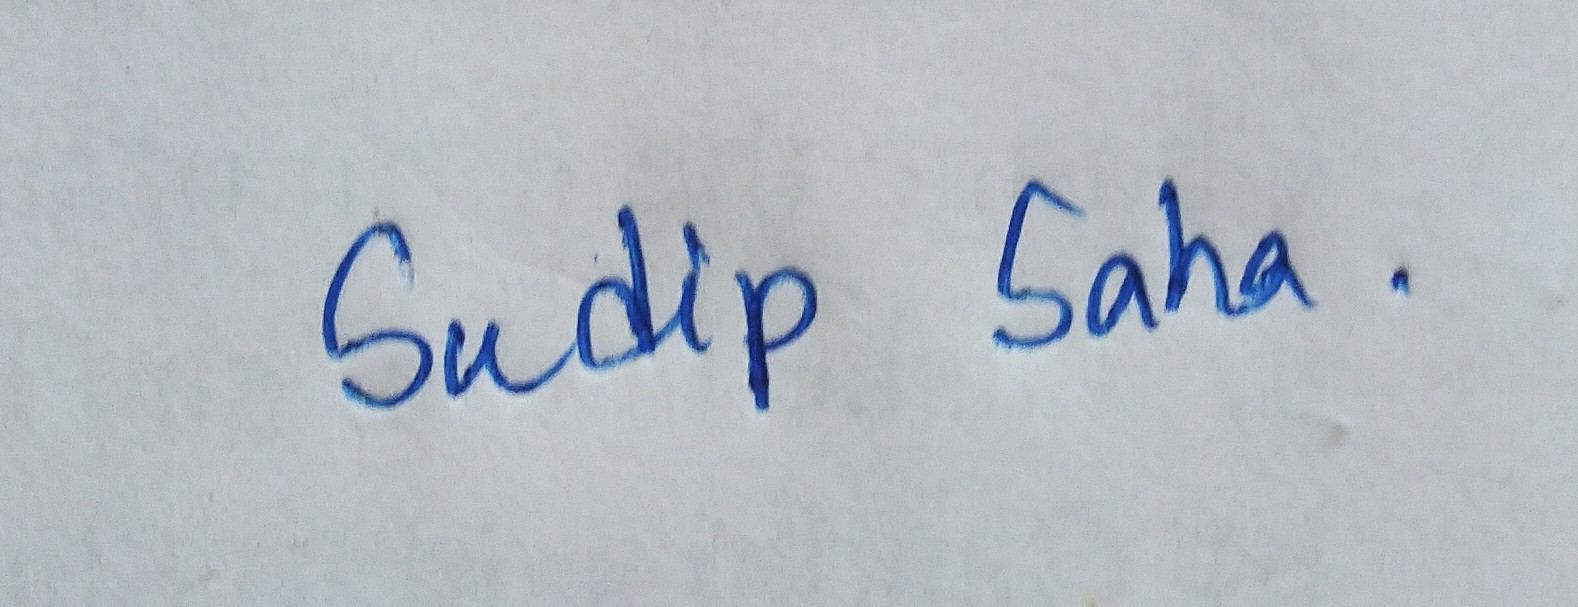 Sudip Saha.